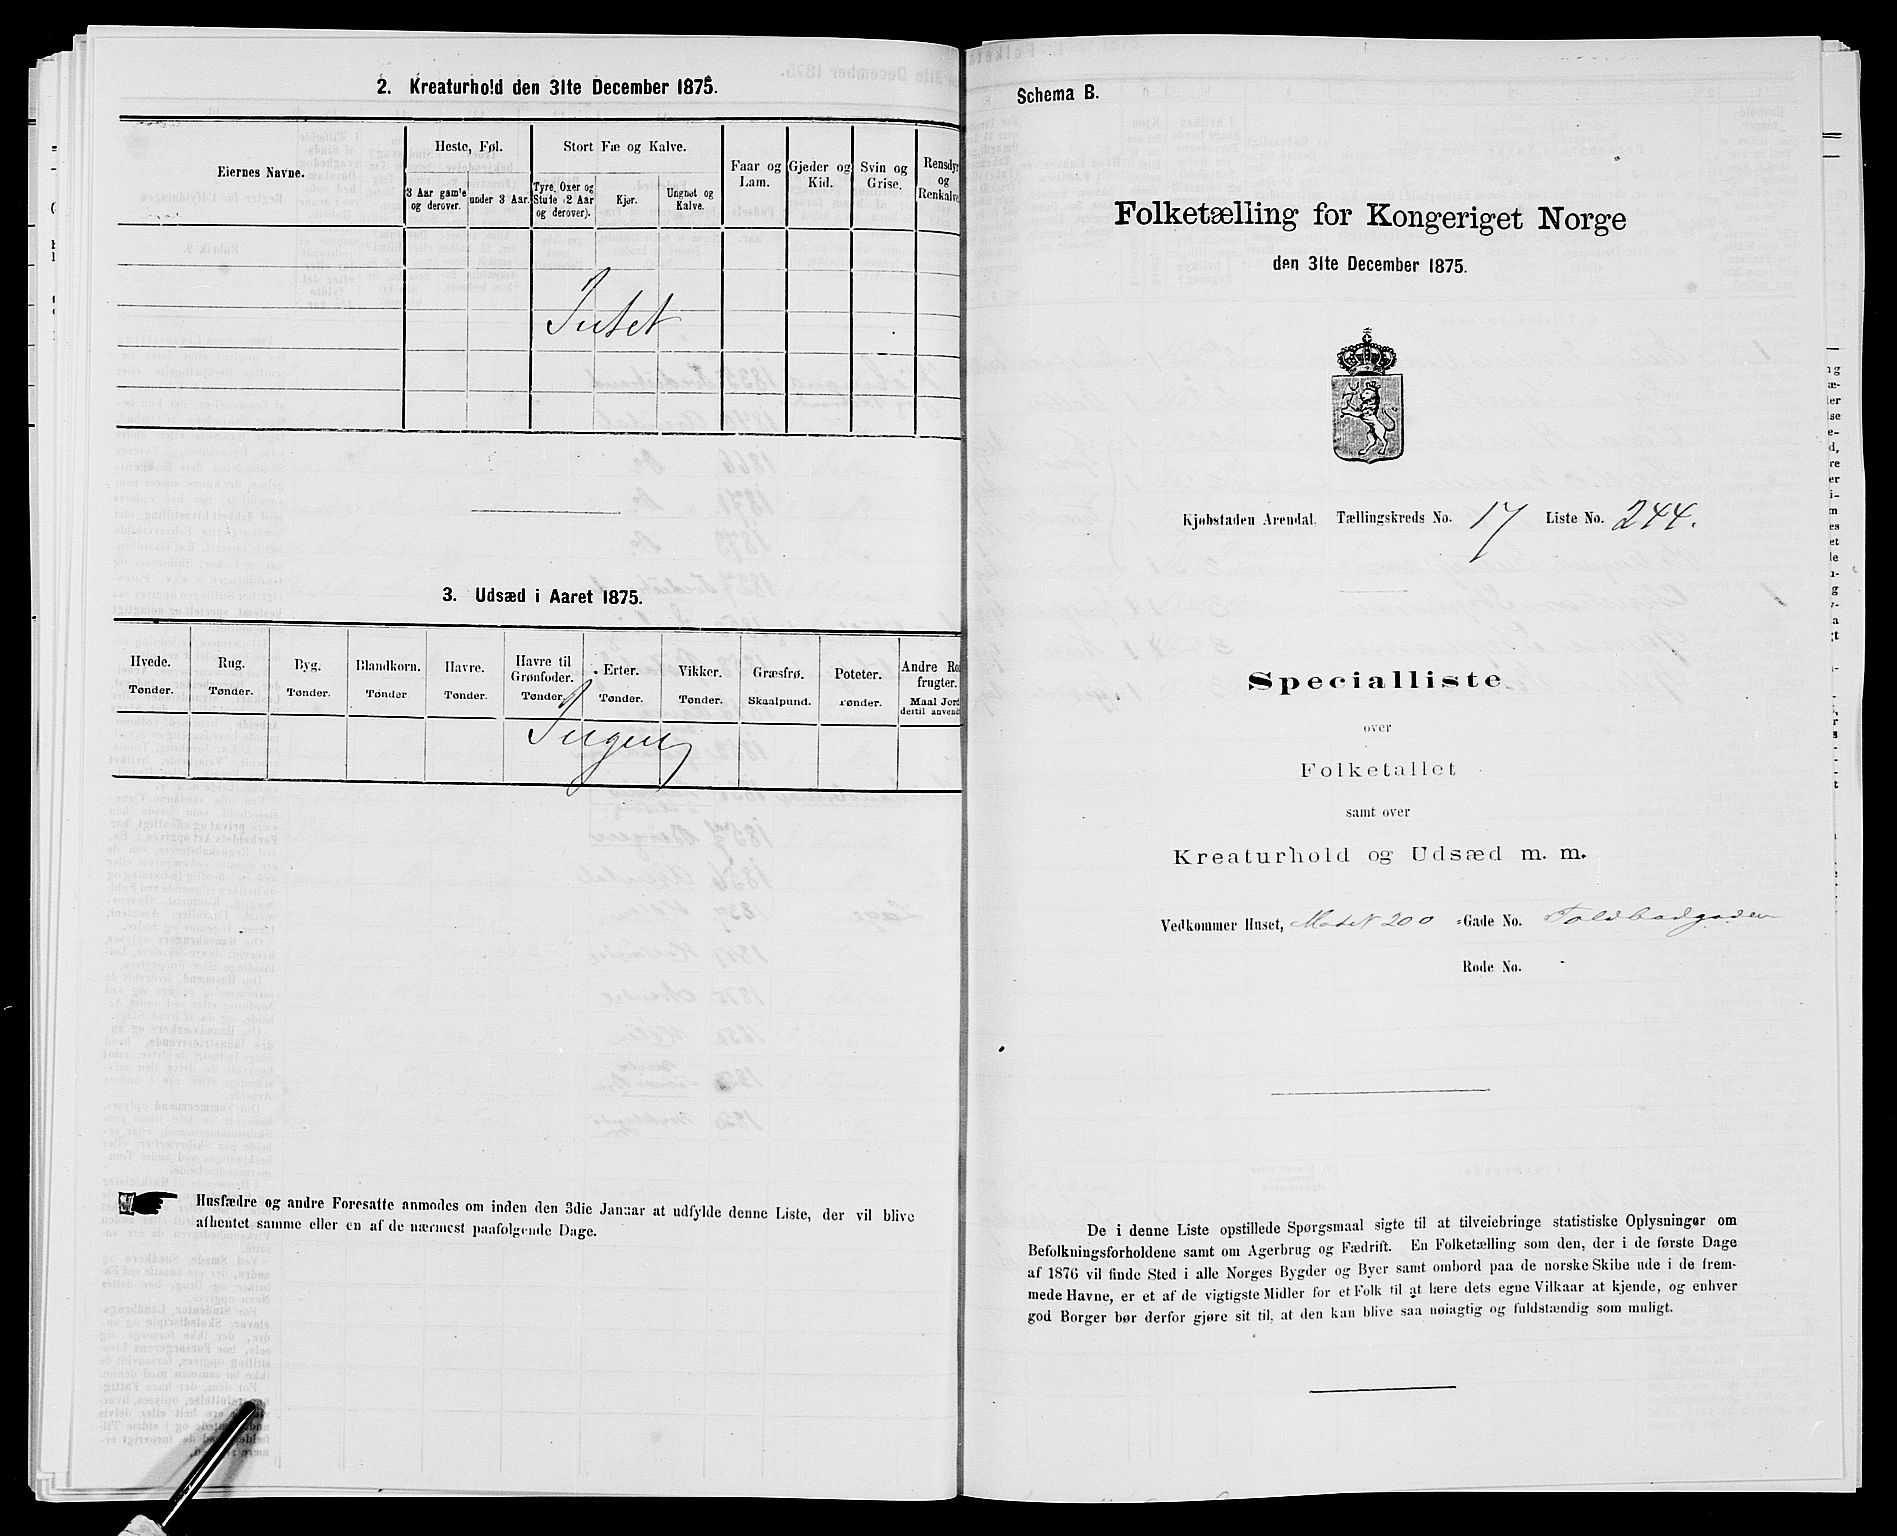 2. Kreaturhold den 31te December 1875.
Eiernes Navne.
Heste, Føl.
Stort Fæ og Kalve.
Faar og Lam.
Gjeder og Kid.
Svin og Grise.
Rensdyr og Renkalve
3 Aar gamle og derover.
under 3 Aar.
Tyre, Oxer og Stude (2 Aar og derover).
Kjør.
Ungnøt og Kalve.
Intet
3. Udsæd i Aaret 1875.
Hvede. Rug. Byg. Blandkorn. Havre. Havre til Grønfoder. Erter. Vikker. Græsfrø. Poteter. Andre Ro frugter.
Tønder. Tønder. Tønder. Tønder Tønder. Tønder. Tønder. Tønder. Skaalpund. Tønder. Maal Jord dertil anvendt
Ingen
Husfædre og andre Foresatte anmodes om inden den 3die Januar at udfylde denne Liste, der vil blive
afhentet samme eller en af de nærmest paafølgende Dage.
Schema B.
Folketælling for Kongeriget Norge
den 31te December 1875.
Kjøbstaden Arendal. Tællingskreds No. 17 Liste No. 244.
Specialliste
over
Folketallet
samt over
Kreaturhold og Udsæd m. m.
Vedkommer Huset, Mat N 200 -Gade No. Toldbodgaden
Rode No.
De i denne Liste opstillede Spørgsmaal sigte til at tilveiebringe statistiske Oplysninger om
Befolkningsforholdene samt om Agerbrug og Fædrift. En Folketælling som den, der i de første Dage
af 1876 vil finde Sted i alle Norges Bygder og Byer samt ombord paa de norske Skibe ude i de frem-
mede Havne, er et af de vigtigste Midler for et Folk til at lære dets egne Vilkaar at kjende, og enhver
god Borger bør derfor gjøre sit til, at den kan blive saa nøiagtig og fuldstændig som muligt.